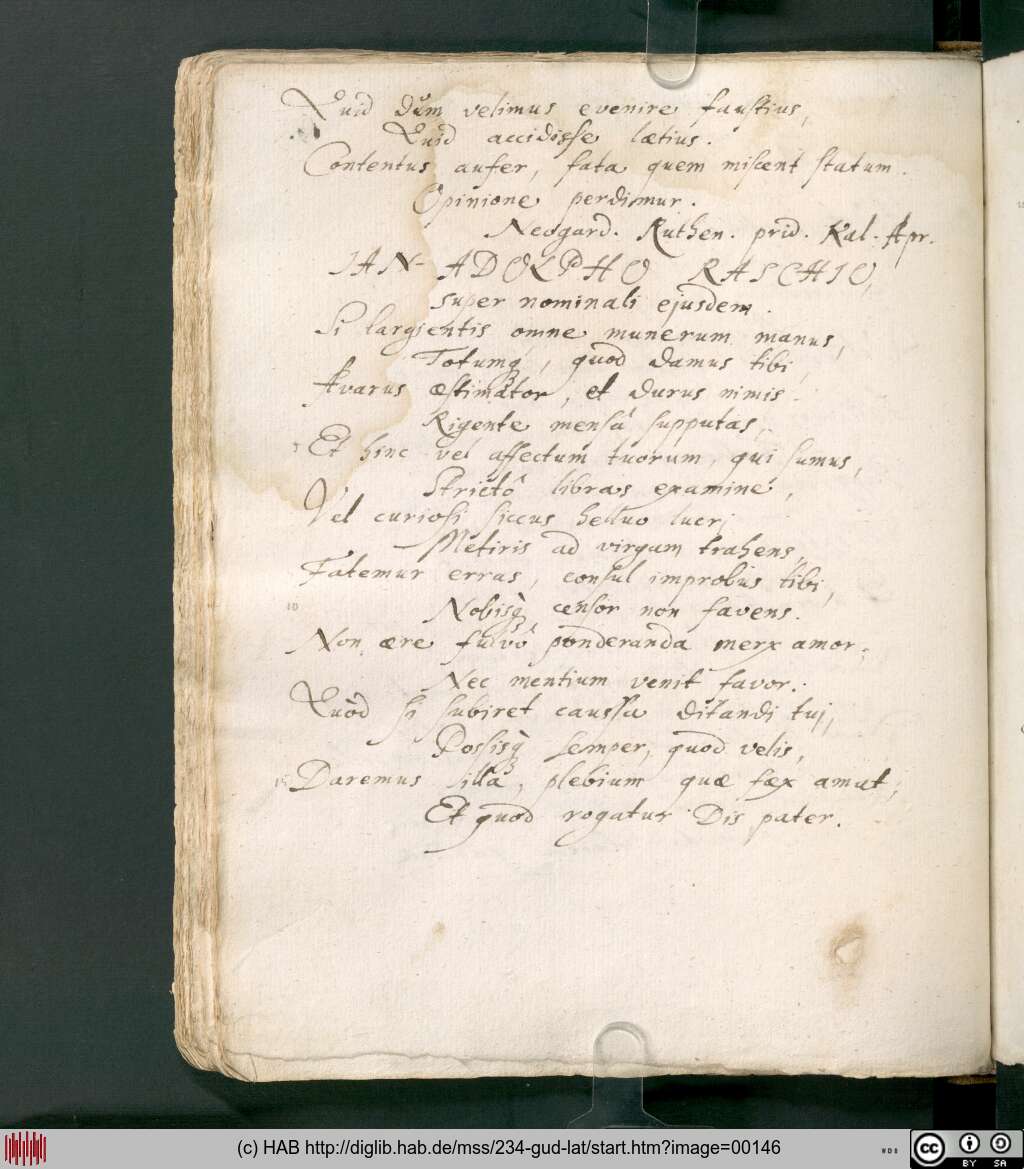 Quid dum velimus evenire faustius,
Quid accidisse lætius.
Contentus aufer, fata quem miscent statum.
Opinione perdimur.
Neogard. Ruthen. prid. Kal. Apr.
IAN-ADOLPHO RASCHIO,
super nominali ejusdem.
Si largientis omne munerum manus,
Totumq, quod damus tibi,
Avarus æstimator, et durus nimis
Rigente mensâ supputas,
5 Et hinc vel affectum tuorum, qui sumus,
Strictô libras examine,
Vel curiosi siccus helluo lucri
Metiris ad virgam trahens,
Fatemur erras, consul improbus tibi,
10 Nobisq censor non favens.
Non ære fulvô ponderanda merx amor,
Nec mentium venit favor.
Quòd si subiret caussa ditandi tui,
Possisq semper, quod velis,
15 Daremus illa, plebium quæ fæx amat,
Et quod rogatur Dis pater.
(c) HAB http://diglib.hab.de/mss/234-gud-lat/start.htm?image=00146
WDB
cc BY SA